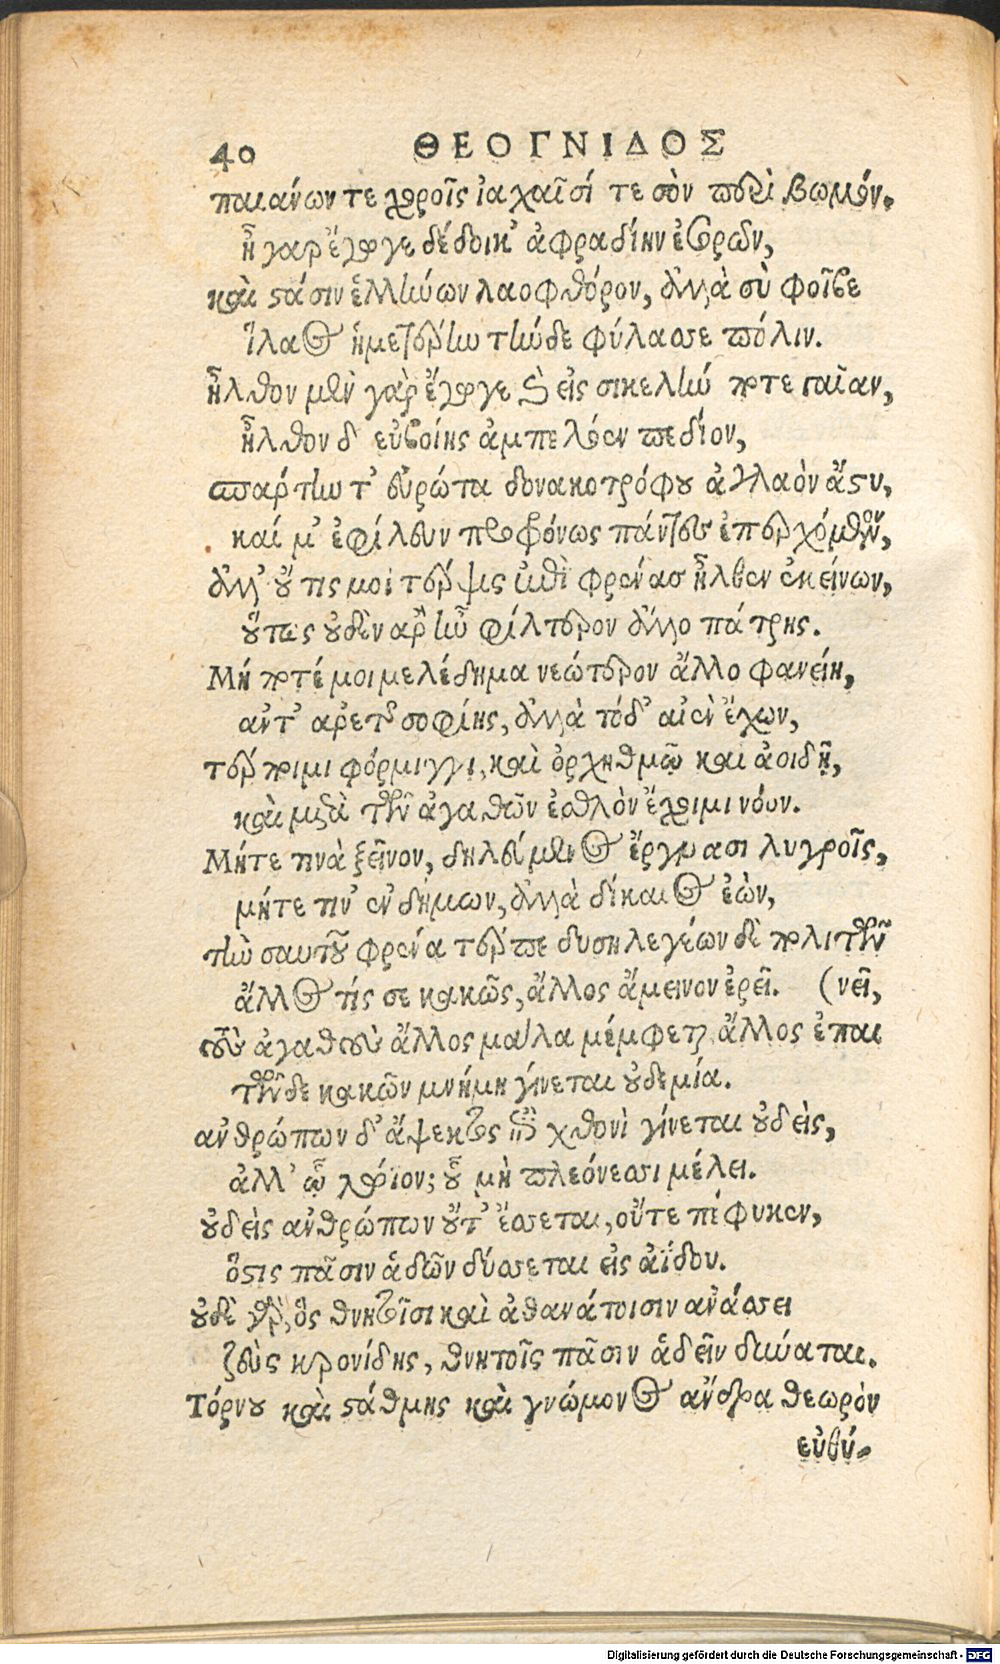 40 ΘΕΟΓΝΙΔΟΣ
παιάνων τε χοροῖς ἰαχαῖσί τε σὸν περὶ βωμόν.
ἦ γαρ ἔγωγε δέδοικ' ἀφραδίην ἐσορῶν,
καὶ στάσιν ἑλλήνων λαοφθόρον, ἀλλὰ σὺ φοῖβε
ἵλαος ἡμετέρην τήνδε φύλασσε πόλιν.
ἦλθον μὲν γὰρ ἔγωγε καὶ εἰς σικελήν ποτε γαῖαν,
ἦλθον δ εὐβοίης ἀμπελόεν πεδίον,
σπάρτην τ' εὐρώτα δονακοτρόφου ἀγλαὸν ἄστυ,
καί μ' ἐφίλευν προφρόνως πάντες ἐπερχόμενον,
ἀλλ' οὔ τις μοι τέρψις ἐπὶ φρένας ἦλθεν ἐκείνων,
οὕτως οὐδὲν ἄρ ἦν φίλτερον ἄλλο πάτρης.
Μή ποτέ μοι μελέδημα νεώτερον ἄλλο φανείη,
ἀντ' ἀρετῆς σοφίης, ἀλλὰ τόδ' αἰὲν ἔχων,
τερποίμι φόρμιγγι, καὶ ὀρχηθμῷ καὶ ἀοιδῇ,
καὶ μετὰ τῶν ἀγαθῶν ἐσθλὸν ἔχοιμι νόον.
Μήτε τινὰ ξεῖνον, δηλεύμενος ἔργμασι λυγροῖς,
μήτε τιν' ἐνδήμων, ἀλλὰ δίκαιος ἐὼν,
τὴν σαυτοῦ φρένα τέρπε δυσηλεγέων δὲ πολιτῶν
ἄλλος τίς σε κακῶς, ἄλλος ἄμεινον ἐρεῖ. (νεῖ,
τοὺς ἀγαθοὺς ἄλλος μάλα μέμφεται ἄλλος ἐπαι
τῶν δε κακῶν μνήμη γίνεται οὐδεμία.
ἀνθρώπων δ' ἄψεκτος ἐπὶ χθονὶ γίνεται οὐδεὶς,
ἀλλ' ᾧ λώϊον; οὗ μὴ πλεόνεσσι μέλει.
οὐδεὶς ἀνθρώπων οὔτ' ἔσσεται, οὔτε πέφυκεν,
ὅστις πᾶσιν ἁδὼν δύσεται εἰς ἀΐδου.
οὐδὲ γὰρ, ὃς θνητοῖσι καὶ ἀθανάτοισιν ἀνάσσει
ζεὺς κρονίδης, θνητοῖς πᾶσιν ἁδεῖν δύναται.
Τόρνου καὶ στάθμης καὶ γνώμονος ἄνδρα θεωρὸν
εὐθύ-
Digitalisierung gefördert durch die Deutsche Forschungsgemeinschaft - DFG